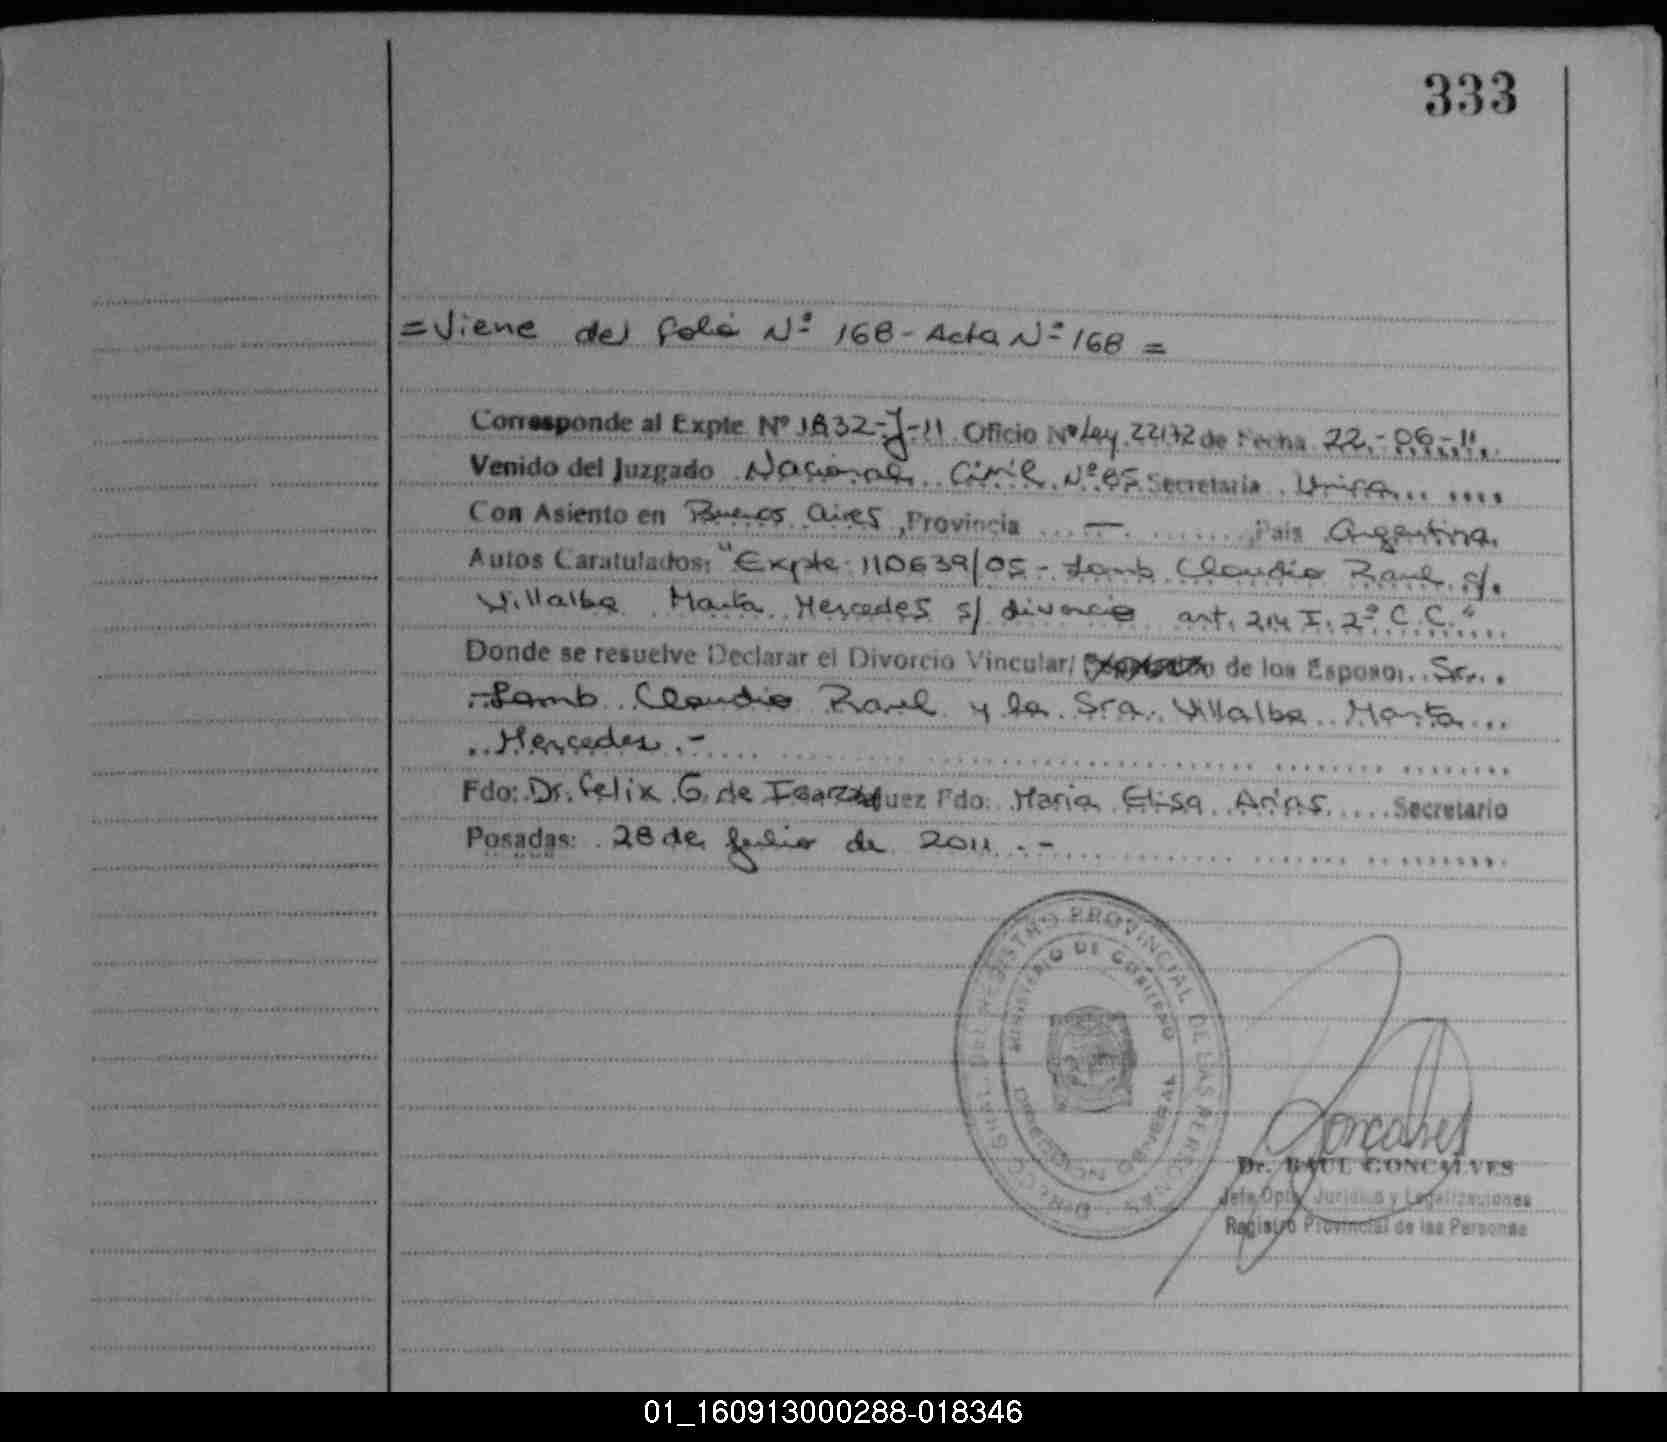 333
= Viene del folio Nº 168 - Acta Nº 168 =
Corresponde al Expte Nº 1832-J-11 Oficio Nº Ley 22172 de Fecha 22-06-11.
Venido del Juzgado Nacional Civil Nº 85 Secretaria Unica
Con Asiento en Buenos Aires, Provincia — , Pais Argentina.
Autos Caratulados: "Expte 110639/05 - Lamb Claudio Raul c/.
Villalba Marta Mercedes s/ divorcio art. 214 I. 2º C.C."
Donde se resuelve Declarar el Divorcio Vincular/ de los Esposos. Sr.
Lamb Claudio Raul y la Sra. Villalba Marta
Mercedes.-
Fdo: Dr. Felix G. de Juez Fdo: Maria Elisa Arias Secretario
Posadas: 28 de Julio de 2011.-
DIRECC. GRAL. DEL REGISTRO PROVINCIAL DE LAS PERSONAS
MINISTERIO DE GOBIERNO
Goncalves
Dr. RAUL GONCALVES
Jefe Dpto. Juridico y Legalizaciones
Registro Provincial de las Personas
01_160913000288-018346